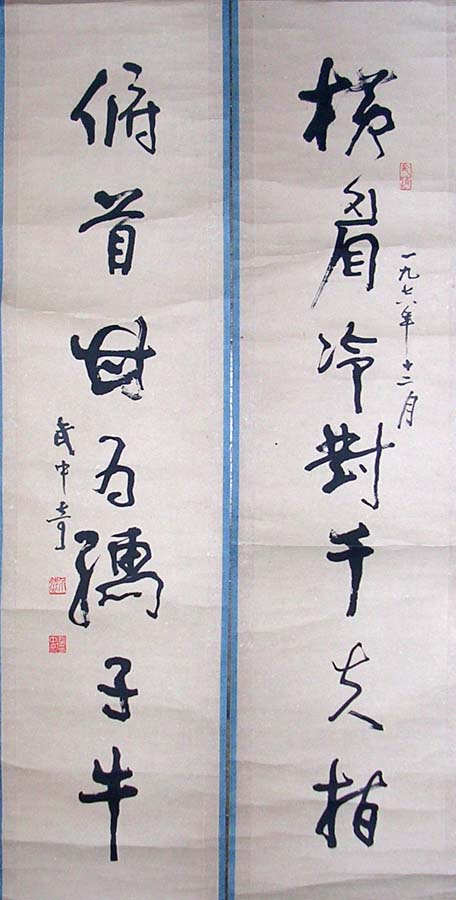 一九七六年十二月
横眉冷對千夫指
俯首甘为孺子牛
武中奇